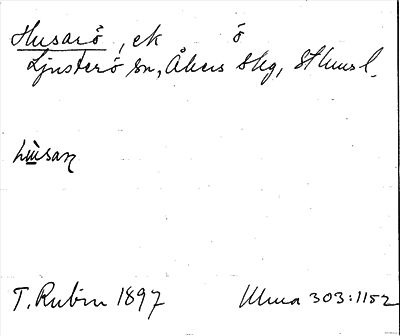 Husarö, ek ö
Ljusterö sn, Åkers skg, Sthms l.
T. Rubin 1897 Ulma 303:1152